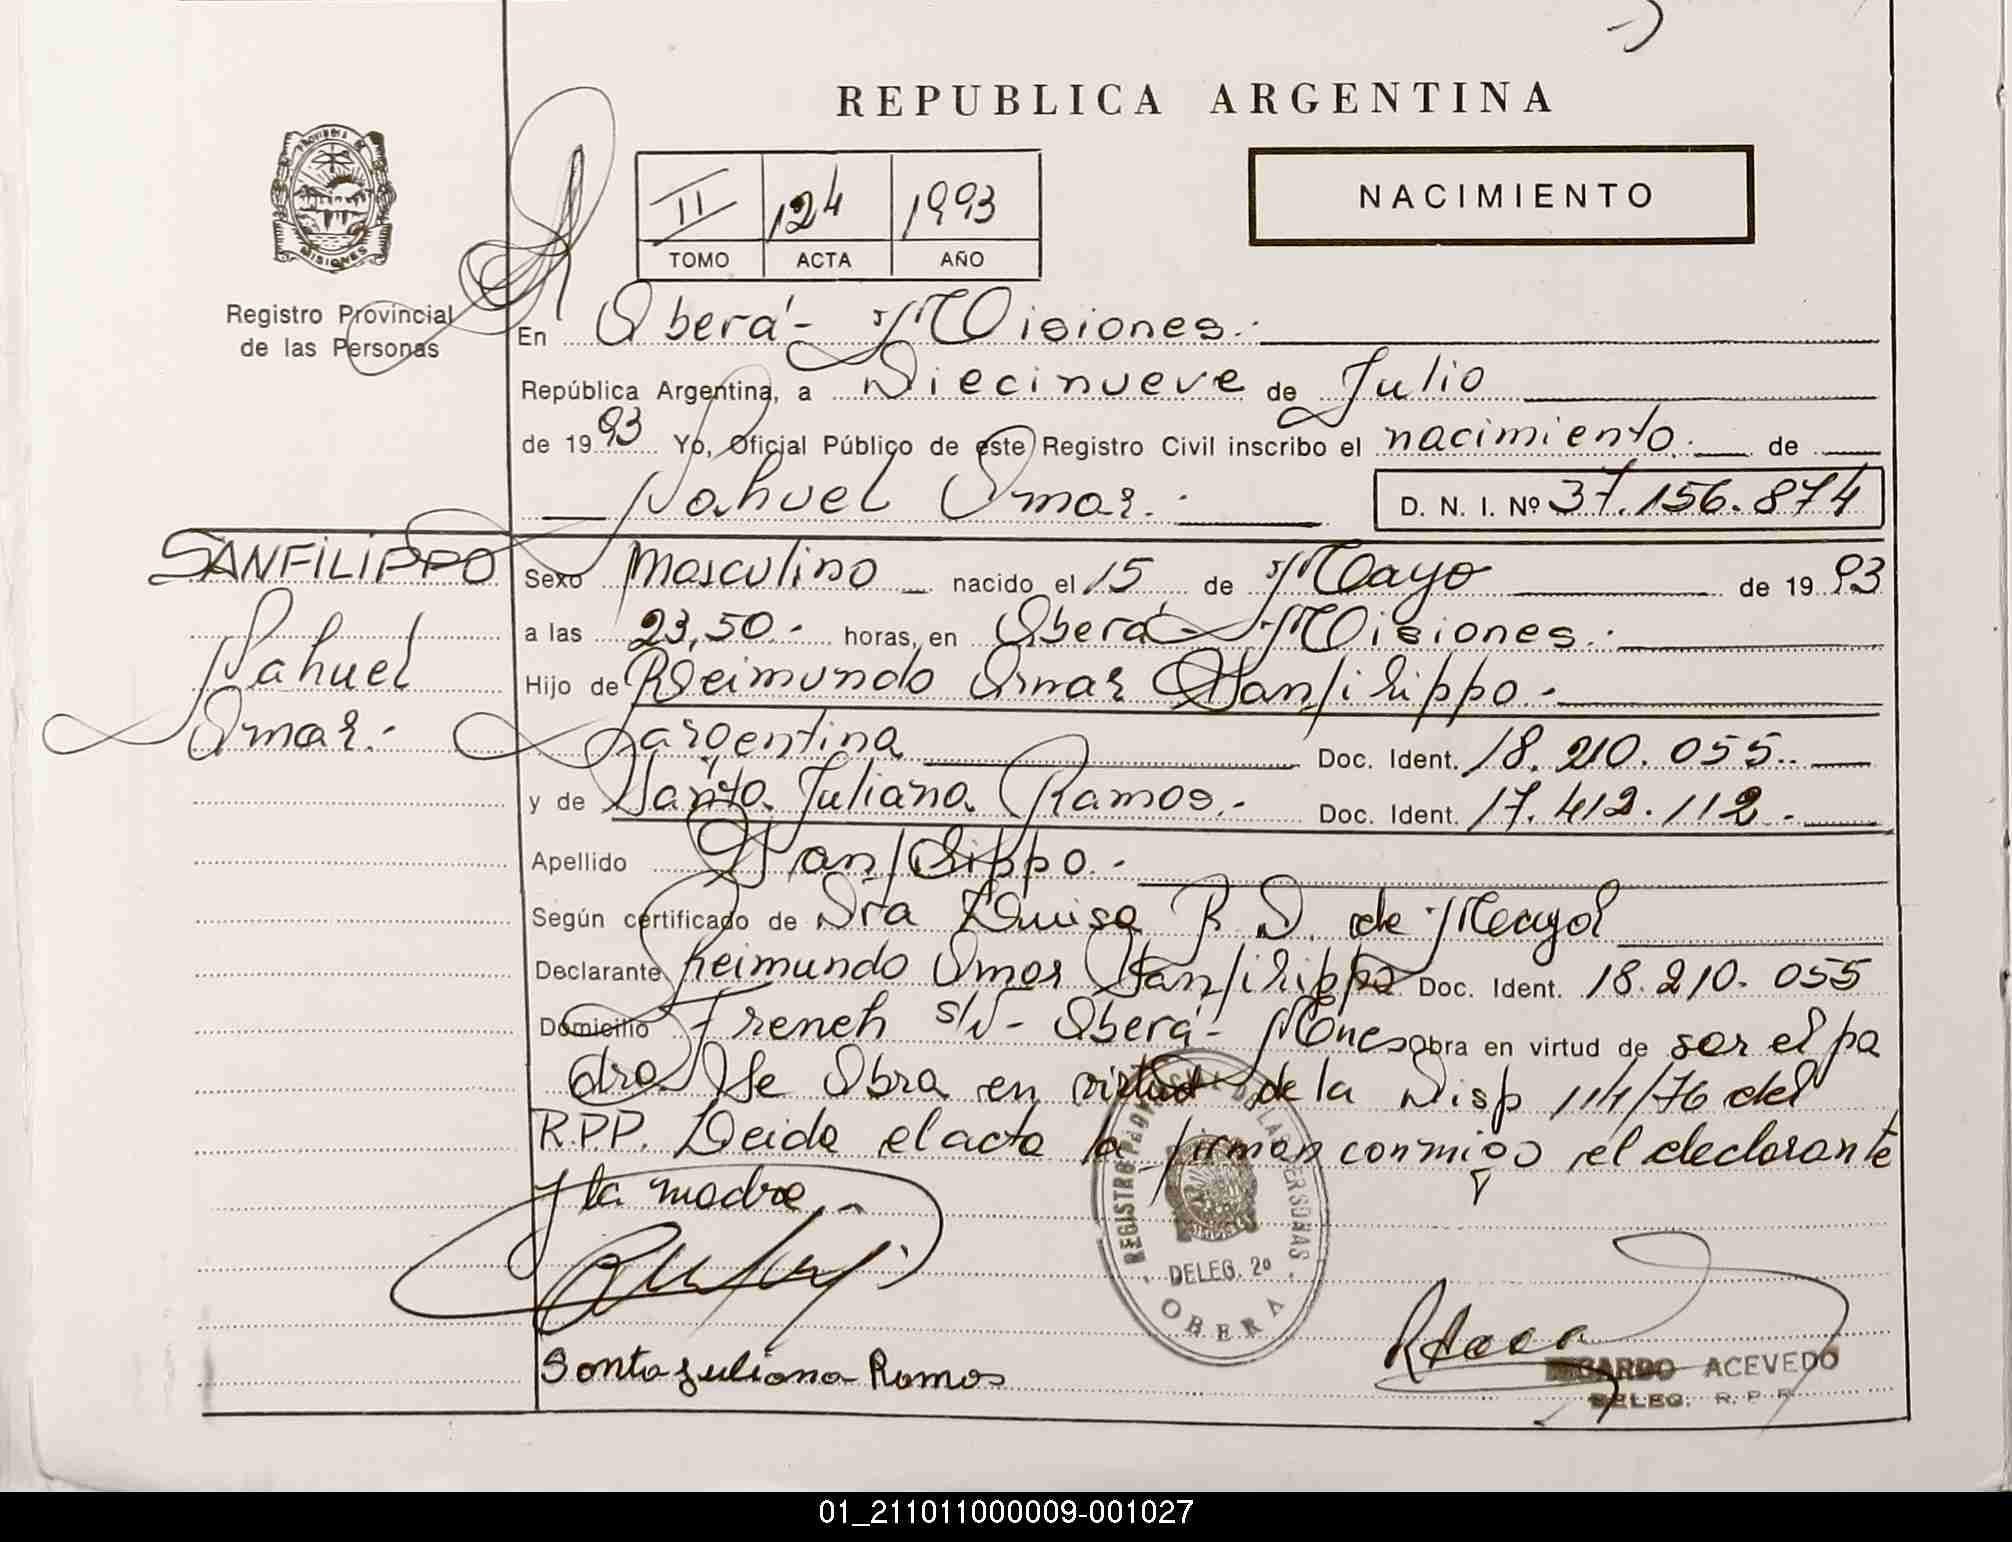 REPUBLICA ARGENTINA
PROVINCIA DE
MISIONES
Registro Provincial
de las Personas
II 124 1993
TOMO ACTA AÑO
NACIMIENTO
En Oberá - Misiones.-
República Argentina, a Diecinueve de Julio
de 1993 Yo, Oficial Público de este Registro Civil inscribo el nacimiento. de
Nahuel Omar.- D. N. I. Nº 37.156.874
SANFILIPPO
Nahuel
Omar.-
Sexo Masculino nacido el 15 de Mayo de 1993
a las 23,50.- horas, en Oberá - Misiones.-
Hijo de Reimundo Omar Sanfilippo.-
argentina Doc. Ident. 18.210.055.-
y de Santa Juliana Ramos.- Doc. Ident. 17.412.112.-
Apellido Sanfilippo.-
Según certificado de Dra Luisa R D. de Mayol
Declarante Reimundo Omar Sanfilippo Doc. Ident. 18.210.055
Domicilio French s/N - Oberá - Mnes obra en virtud de ser el pa
dre Se Obra en virtud de la Disp 114/76 del
R.P.P. Leida el acta la firman conmigo el declarante
y la madre.-
REGISTRO PROVINCIAL DE LAS PERSONAS
DELEG. 2º
OBERA
Santa Juliana Ramos
RICARDO ACEVEDO
DELEG. R. P. P.
01_211011000009-001027